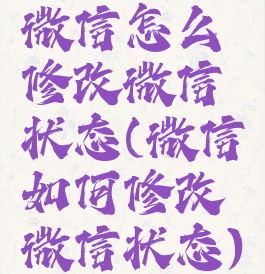 微信怎么
修改微信
状态(微信
如何修改
微信状态)